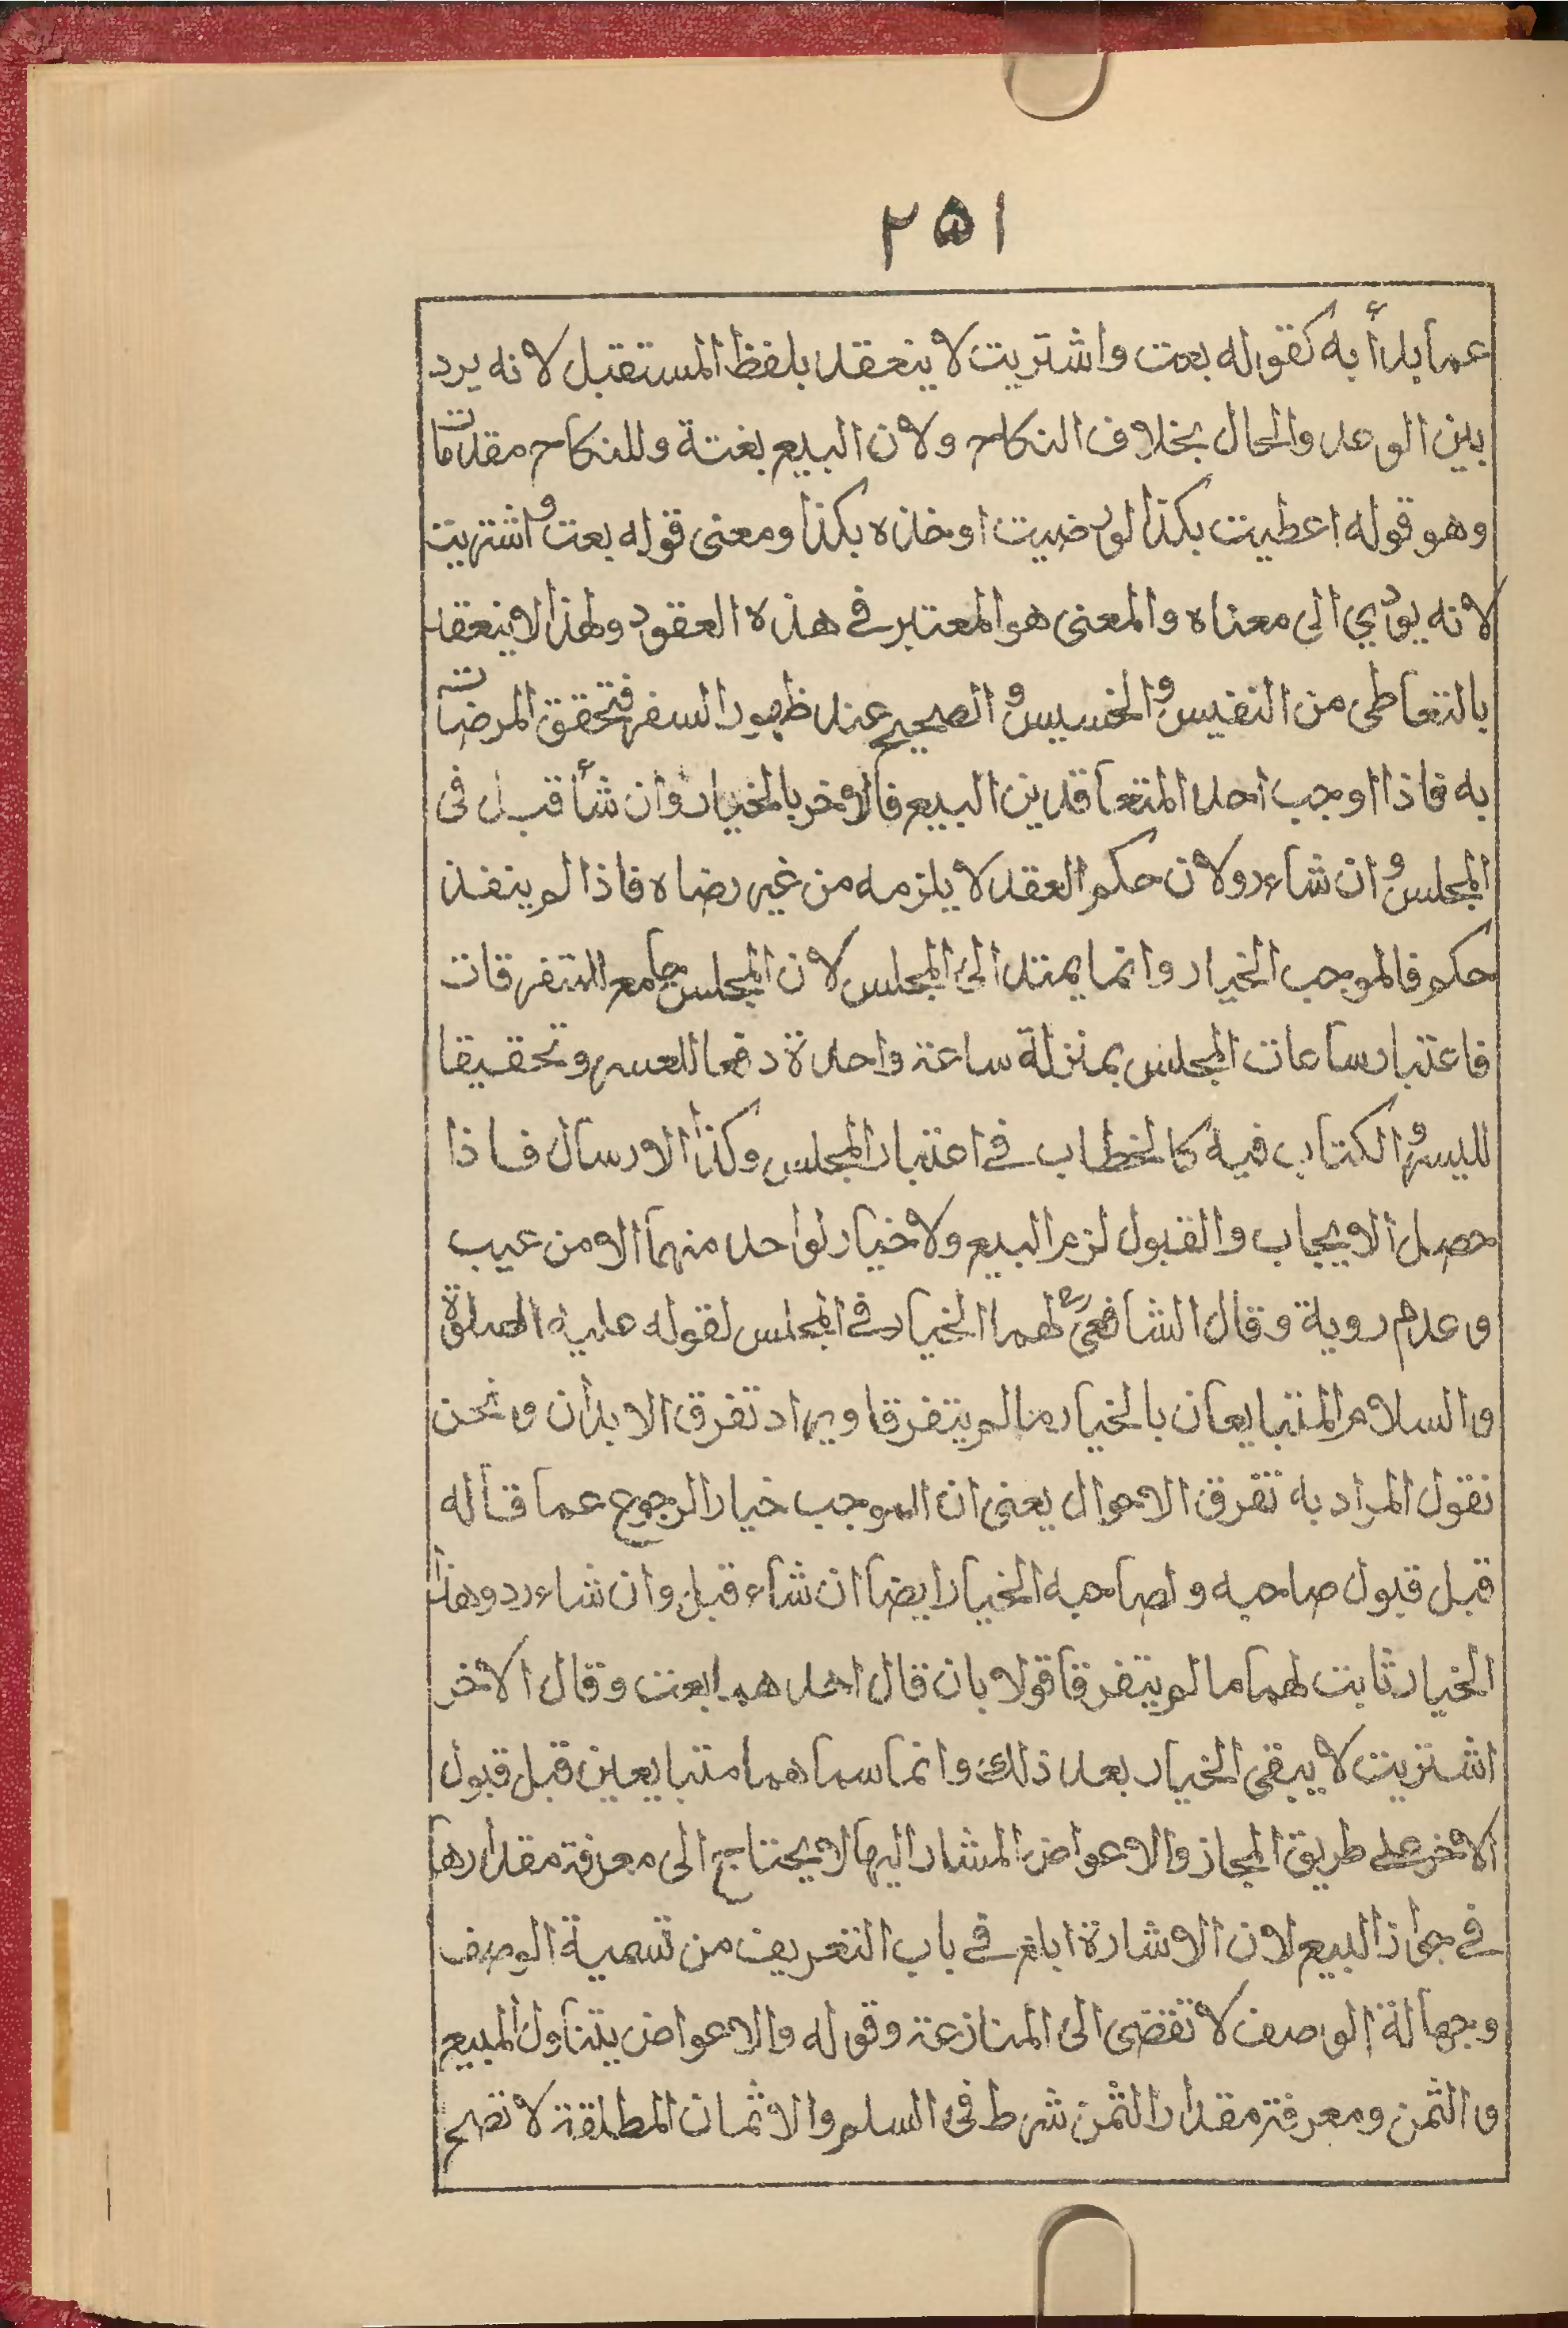 ٢٥١
عما بدأ به كقوله بعت واشتريت لا ينعقد بلفظ المستقبل لانه يرد
بين الوعد والحال بخلاف النكاح ولان البيع بغتة وللنكاح مقدمات
وهو قوله اعطيت بكذا لو رضيت او خذه بكذا ومعنى قوله بعت واشتريت
لانه يؤدي الى معناه والمعنى هو المعتبر في هذه العقود ولهذا لا ينعقد
بالتعاطى من النفيس والخسيس والصحيح عند ظهور السفر فتحقق المرضات
به فاذا اوجب احد المتعاقدين البيع فالاخر بالخيار وان شأ قبل فى
المجلس وان شاء رد ولان حكم العقد لا يلزمه من غير رضاه فاذا لم ينفذ
حكم فالموجب الخيار وانما يمتد الى المجلس لان المجلس جامع للتفرقات
فاعتبار ساعات المجلس بمنزلة ساعة واحدة دفعا للعسر وتحقيقا
لليسر والكتاب فيه كالخطاب في اعتبار المجلس وكذا الارسال فاذا
حصل الايجاب والقبول لزم البيع ولا خيار لواحد منهما الا من عيب
وعدم روية وقال الشافعىؒ لهما الخيار في المجلس لقوله عليه الصلوة
والسلام المتبايعان بالخيار مالم يتفرقا ويراد تفرق الابدان ونحن
نقول المراد به تفرق الاحوال يعنى ان الموجب خيار الرجوع عما قاله
قبل قبول صاحبه ولصاحبه الخيار ايضا ان شاء قبل وان شاء رد وهذا
الخيار ثابت لهما مالم يتفرقا قولا بان قال احدهما بعت وقال الاخر
اشتريت لا يبقى الخيار بعد ذلك وانما سماهما متبايعين قبل قبول
الاخر على طريق المجاز والاعواض المشار اليها لا يحتاج الى معرفة مقدارها
في جواز البيع لان الاشارة ابلغ في باب التعريف من تسمية الوصف
وجهالة الوصف لا تفضى الى المنازعة وقوله والاعواض يتناول المبيع
والثمن ومعرفة مقدار الثمن شرط فى السلم والاثمان المطلقة لا تصح